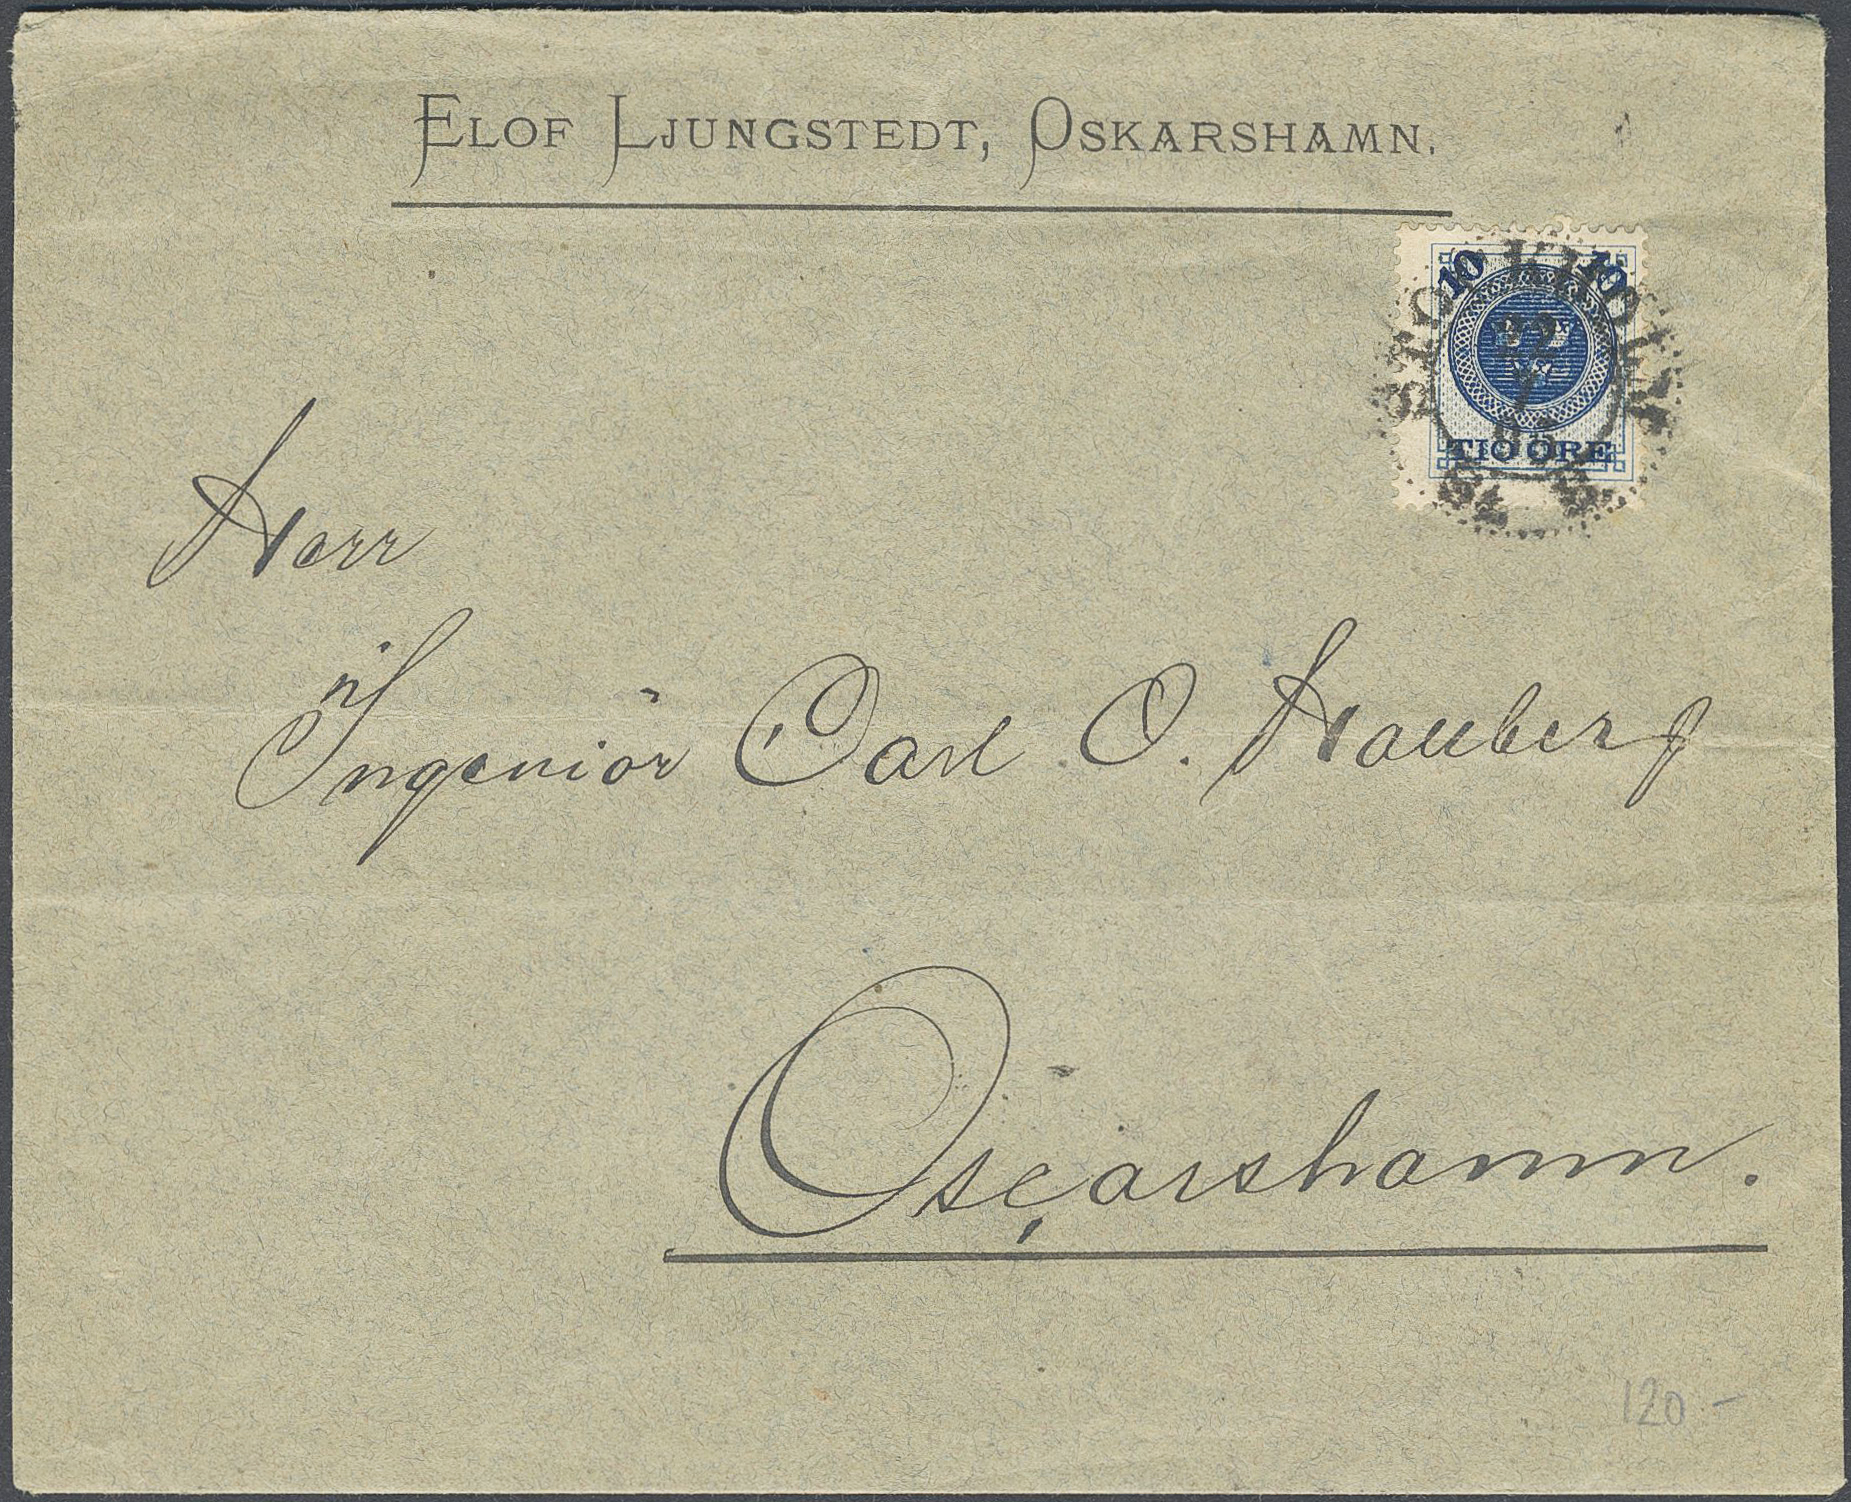 ELOF LJUNGSTEDT, OSKARSHAMN.
10 10
STOCKHOLM
22
7
TIO ÖRE
Herr
Ingeniör Carl O. Hauberg
Oscarshamn.
120 -